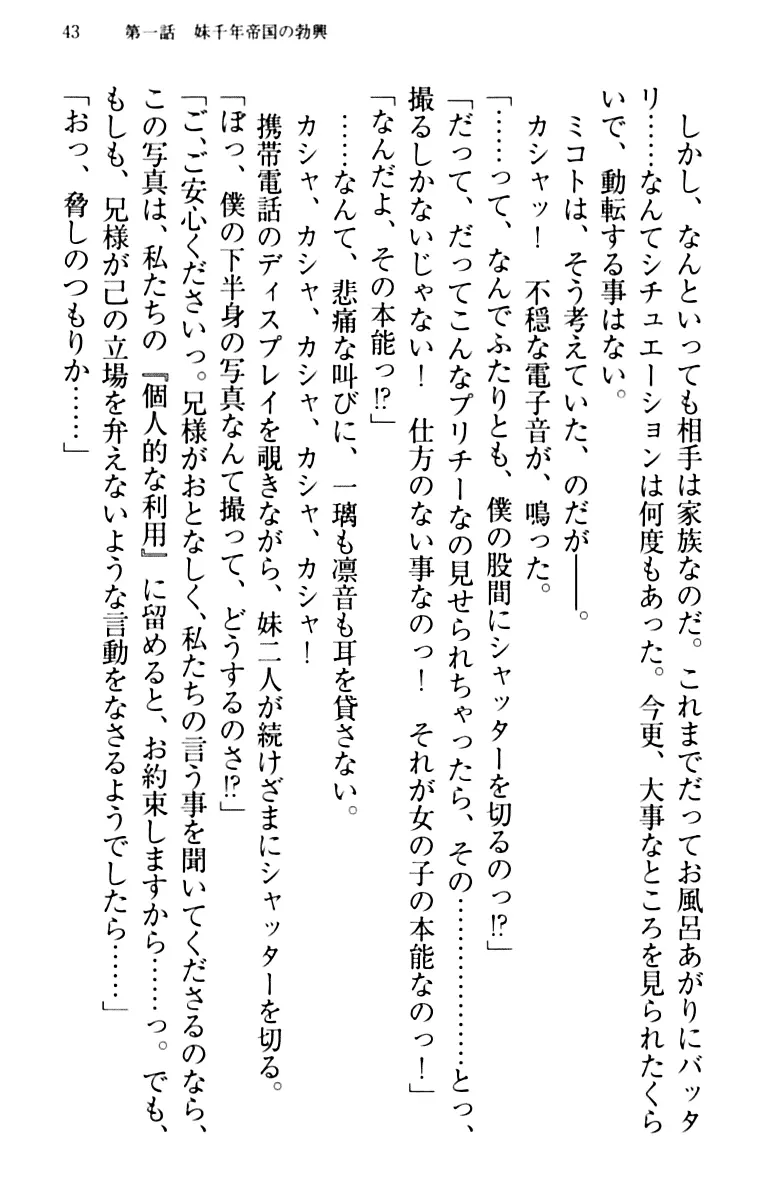 43　第一話　妹千年帝国の勃興
しかし、なんといっても相手は家族なのだ。これまでだってお風呂あがりにバッタ
リ……なんてシチュエーションは何度もあった。今更、大事なところを見られたくら
いで、動転する事はない。
ミコトは、そう考えていた、のだが――。
カシャッ！　不穏な電子音が、鳴った。
「……って、なんでふたりとも、僕の股間にシャッターを切るのっ!?」
「だって、だってこんなプリチーなの見せられちゃったら、その………………とっ、
撮るしかないじゃない！　仕方のない事なのっ！　それが女の子の本能なのっ！」
「なんだよ、その本能っ!?」
……なんて、悲痛な叫びに、一璃も凛音も耳を貸さない。
カシャ、カシャ、カシャ、カシャ、カシャ！
携帯電話のディスプレイを覗きながら、妹二人が続けざまにシャッターを切る。
「ぼっ、僕の下半身の写真なんて撮って、どうするのさ!?」
「ご、ご安心くださいっ。兄様がおとなしく、私たちの言う事を聞いてくださるのなら、
この写真は、私たちの『個人的な利用』に留めると、お約束しますから……っ。でも、
もしも、兄様が己の立場を弁えないような言動をなさるようでしたら……」
「おっ、脅しのつもりか……」